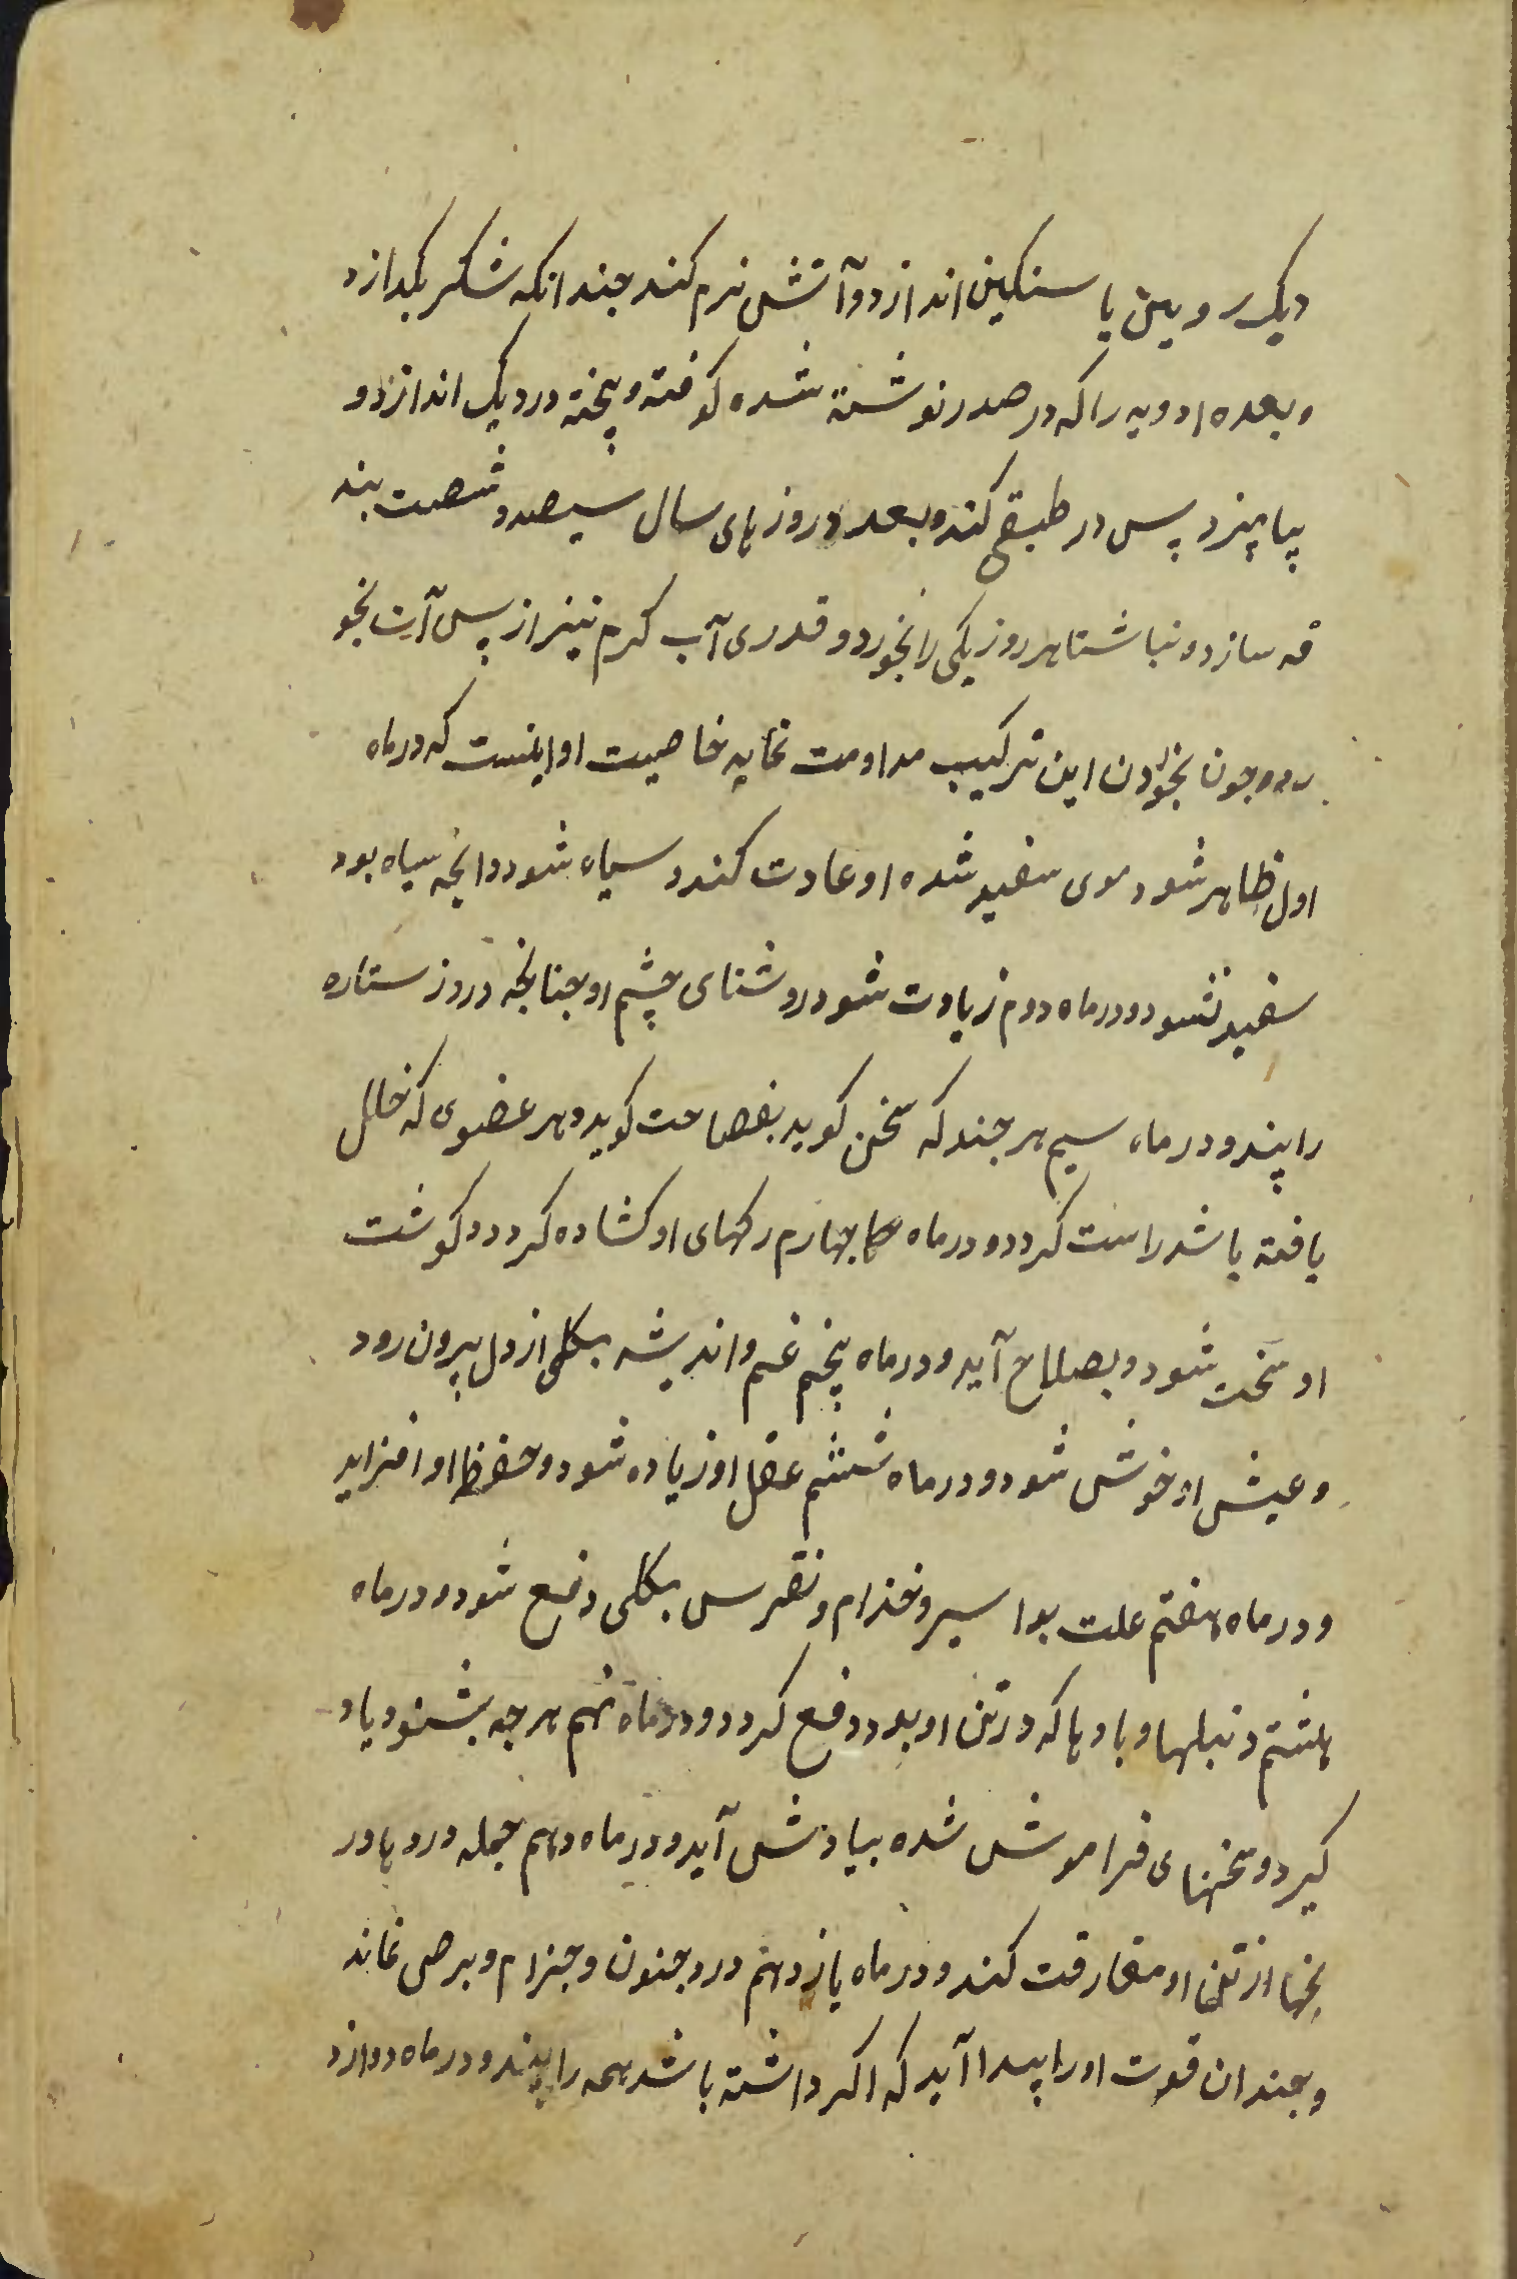 دیک رویین یا سنکین اندازد و آتش نرم کند چندانکه شکر بکدازد
و بعده ادویه را که در صدر نوشته شده کوفته و پخته در دیک اندازد و
بیامیزد پس در طبقی کند و بعدد روزهای سال سیصد و شصت بند
قه سازد و نباشتا هر روز یکی را بخورد و قدری آب کرم نیز از پس آن بخو
رد و چون بخوردن این ترکیب مداومت نماید خاصیت او اینست که در ماه
اول ظاهر شود موی سفید شده او عادت کند و سیاه شود و انچه سیاه بود
سفید نشود و در ماه دوم زیادت شود روشنای چشم او چنانچه در روز ستاره
را بیند و در ماه سیم هر چند که سخن کوید بفصاحت کوید و هر عضوی که خلل
یافته باشد راست کردد و در ماه چهارم رکهای او کشاده کردد و کوشت
او سخت شود و بصلاح آید و در ماه پنجم غم و اندیشه بکلی از دل بیرون رود
و عیش او خوش شود و در ماه ششم عقل او زیاده شود و حفظ او افزاید
و در ماه هفتم علت بواسیر و خذام و نقرس بکلی دفع شود و در ماه
هشتم دنبلها و بادها که در تن او بود دفع کردد و در ماه نهم هر چه بشنود یاد
کیرد و سخنهای فراموش شده بیادش آید و در ماه دهم جمله دردها در
بخها از تن او مفارقت کند و در ماه یازدهم درد جنون و جزام و برص نماند
و چندان قوت او را پیدا آید که اکر داشته باشد همه را بیند و در ماه دوازد